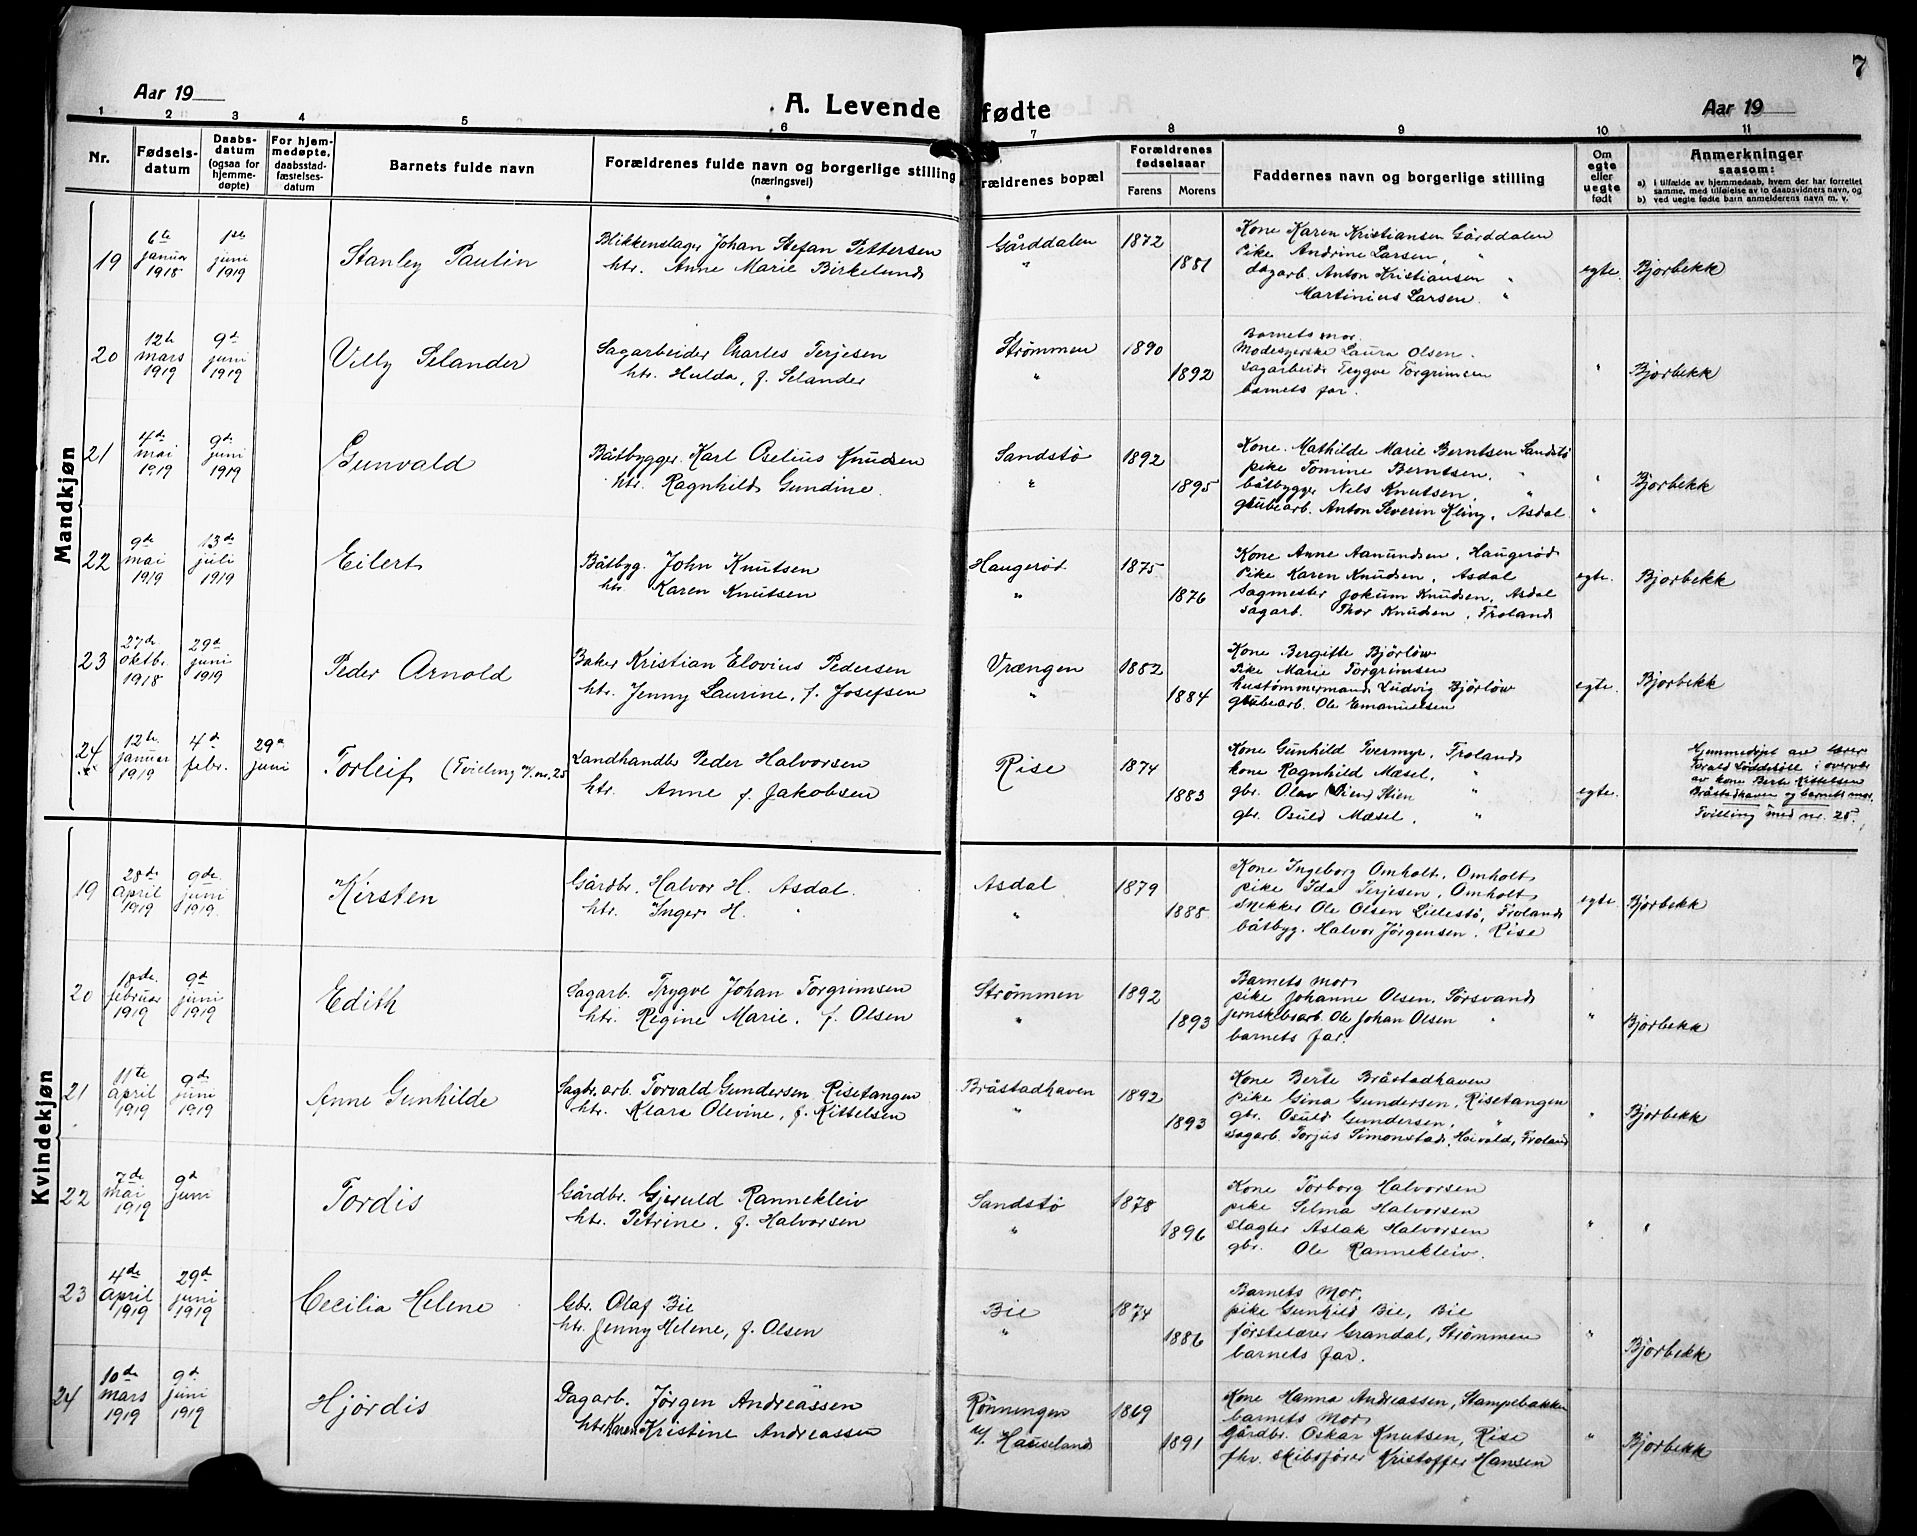 7
Aar 19
A. Levende fødte
Aar 19
1 2 3 4 5 6 7 8 9 10 11
Nr.
Fødsels-
datum
Daabs-
datum
(ogsaa for
hjemme-
døpte)
For hjem-
medøpte,
daabsstad-
fæstelses-
datum
Barnets fulde navn
Forældrenes fulde navn og borgerlige stilling
(næringsvei)
rældrenes bopæl
Forældrenes
fødselsaar
Farens Morens
Faddernes navn og borgerlige stilling
Om
egte
eller
uegte
født
Anmerkninger
saasom:
a) i tilfælde av hjemmedaab, hvem der har forrettet
samme, med tilføielse av to daabsvidners navn, og
b) ved uegte fødte barn anmelderens navn m. v.
Mandkjøn
19
6te januar 1918
1ste juni 1919
Stanley Paulin
Blikkenslager Johan Stefan Pettersen
htr. Anne Marie Birkelund
Gårddalen
"
1872
1881
Kone Karen Kristiansen Gårddalen
Pike Andrine Larsen, "
dagarb. Anton Kristiansen "
Martinius Larsen "
egte.
Bjorbekk
20
12te mars 1919
9de juni 1919
Villy Selander
Sagarbeider Charles Terjesen
htr. Hulda, f. Selander
Strømmen
"
1890
1892
Barnets mor.
Modesyerske Laura Olsen.
Sagarbeid. Trygve Torgrimsen
barnets far.
"
Bjorbekk
21
4de mai 1919
9de juni 1919
Gunvald
Båtbygger Karl Oselius Knudsen
htr. Ragnhild Gundine.
Sandstø
"
1892
1895
Kone Mathilde Marie Berntsen Sandstø
pike Tomine Berntsen, "
båtbygger Nels Knutsen, "
grubearb. Anton Severin Kling, Asdal
"
"
Bjorbekk
22
9de mai 1919
13de juli 1919
Eilert
Båtbyg. John Knutsen
htr. Karen Knutsen
Haugerød
"
1875
1876
Kone Anne Aanundsen, Haugerød
Pike Karen Knudsen, Asdal
Sagmester Jokum Knudsen, Asdal
Sagarb. Thor Knudsen, Froland
egte.
Bjorbekk
23
27de oktbr. 1918
29de juni 1919
Peder Arnold
Baker Kristian Elovius Pedersen
htr. Jenny Laurine, f. Josefsen
Vrængen
"
1882
1884
Kone Bergitte Bjørløw
Pike Marie Torgrimsen
hustømmermand Ludvig Bjørløw
grubearb. Ole Emanuelsen
egte.
Bjorbekk
24
12te januar 1919
4de febr.
29de juni
Torleif (Tvilling m/ nr. 25
Landhandler Peder Halvorsen
htr. Anne f. Jakobsen
Rise
1874
1883
Kone Gunhild Tvermyr, Froland
kone Ragnhild Mæsel, "
gbr. Olav Stien "
gbr. Osuld Mæsel, "
egte.
Hjemmedøpt av lærer
Torald Løddesøll i overvær
av kone Berte Kittelsen
Bråstadhaven og barnets mor.
Tvilling med nr. 25.
Kvindekjøn
19
28de april 1919
9de juni 1919
Kirsten
Gårdbr. Halvor H. Asdal.
htr. Inger H. "
Asdal
"
1879
1888
Kone Ingeborg Omholt, Omholt
pike Ida Terjesen, Omholt
Snekker Ole Olsen Lillestø, Froland
båtbyg. Halvor Jørgensen, Rise
egte
Bjorbekk
20
18de februar 1919
9de juni 1919
Edith
Sagarb. Trygve Johan Torgrimsen
htr. Regine Marie, f. Olsen
Strømmen
"
1892
1893
Barnets mor
pike Johanne Olsen, Sørsvand
jernskibsarb. Ole Johan Olsen "
barnets far.
"
Bjorbekk
21
11te april 1919
9de juni 1919
Anne Gunhilde
Sagbr. arb. Torvald Gundersen, Risetangen
htr. Klara Olevine, f. Kittelsen
Bråstadhaven
"
1892
1893
Kone Berte Bråstadhaven
pike Gina Gundersen, Risetangen
gbr. Osuld Gundersen, "
Sagarb. Torjus Simonstad, Heivold, Froland
"
Bjorbekk
22
7de mai 1919
9de juni
Tordis
Gårdbr. Gjeruld Rannekleiv
htr. Petrine, f. Halvorsen
Sandstø
"
1878
1896
Kone Torborg Halvorsen
pike Selma Halvorsen
Slagter Aslak Halvorsen
gbr. Ole Rannekleiv.
"
"
23
4de april 1919
29de juni 1919
Cecilia Helene
Gbr. Olaf Bie
htr. Jenny Helene, f. Olsen
Bie
"
1874
1886
Barnets mor,
pike Gunhild Bie, Bie
førstelærer Grandal, Strømmen
barnets far.
"
Bjorbekk
24
10de mars 1919
9de juni 1919
Hjørdis
Dagarb. Jørgen Andreassen
htr. Karen Kristine Andreassen
Rønningen
u/ Hauseland
1869
1891
Kone Hanna Andreassen, Stampebakken
barnets mor
Gårdbr. Oskar Knutsen, Rise
fhv. skibsfører Kristoffer Hansen
"
Bjorbekk